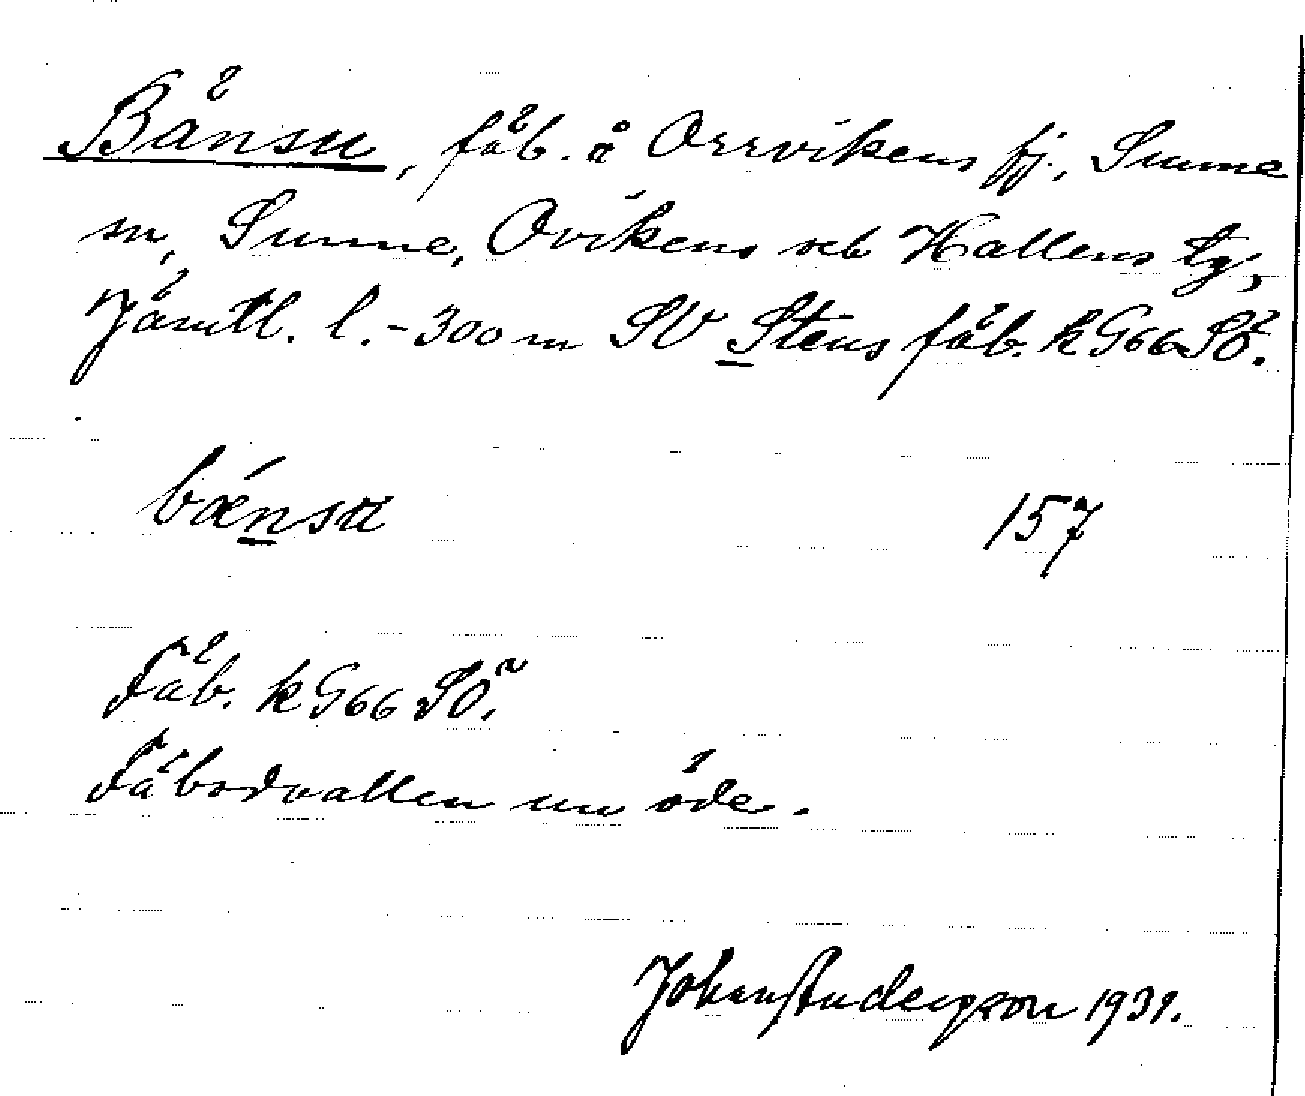 Bänsu, fäb. å Orrvikens fj., Sunne
sn, Sunne, Ovikens och Hallens tg,
Jämtl. l. - 300 m SV Stens fäb. k G66 SÖ.
bǽnsu 157
Fäb. k G66 SÖ.
Fäbodvallen nu öde.
Johan Anderson 1931.